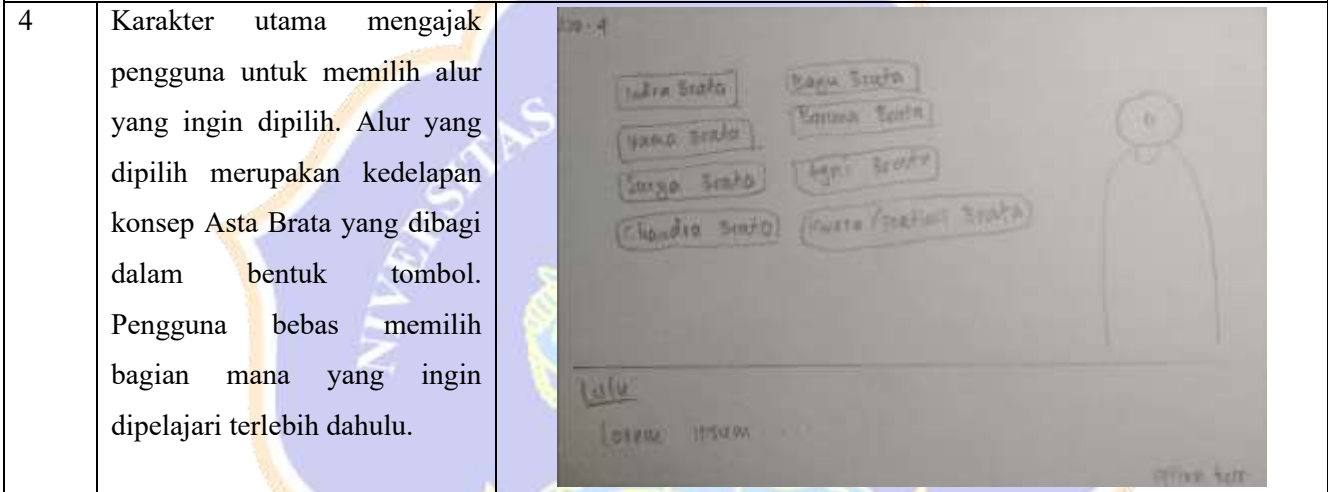 4
Karakter utama mengajak
pengguna untuk memilih alur
yang ingin dipilih. Alur yang
dipilih merupakan kedelapan
konsep Asta Brata yang dibagi
dalam bentuk tombol.
Pengguna bebas memilih
bagian mana yang ingin
dipelajari terlebih dahulu.
Indra Brata
Bayu Brata
Yama Brata
Baruna Brata
Surya Brata
Agni Brata
Chandra Brata
Brata
Lulu
Lorem ipsum ...